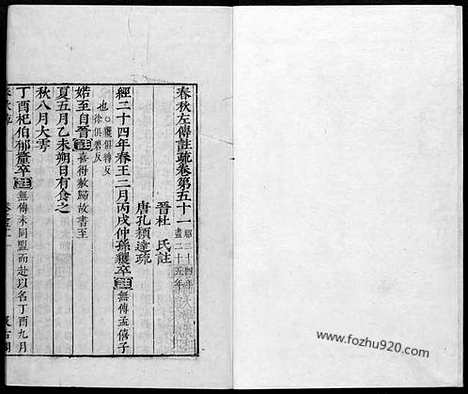 春秋左傳註疏卷第五十一 起二十四年盡二十五年
晉杜 氏註
唐孔頴達疏
經二十四年春王二月丙戌仲孫貜卒 無傳孟僖子
也
婼至自晉 喜得赦歸故書至
夏五月乙未朔日有食之
秋八月大雩
丁酉杞伯郁釐卒 無傳未同盟而赴以名丁酉九月
www.fozhu920.com